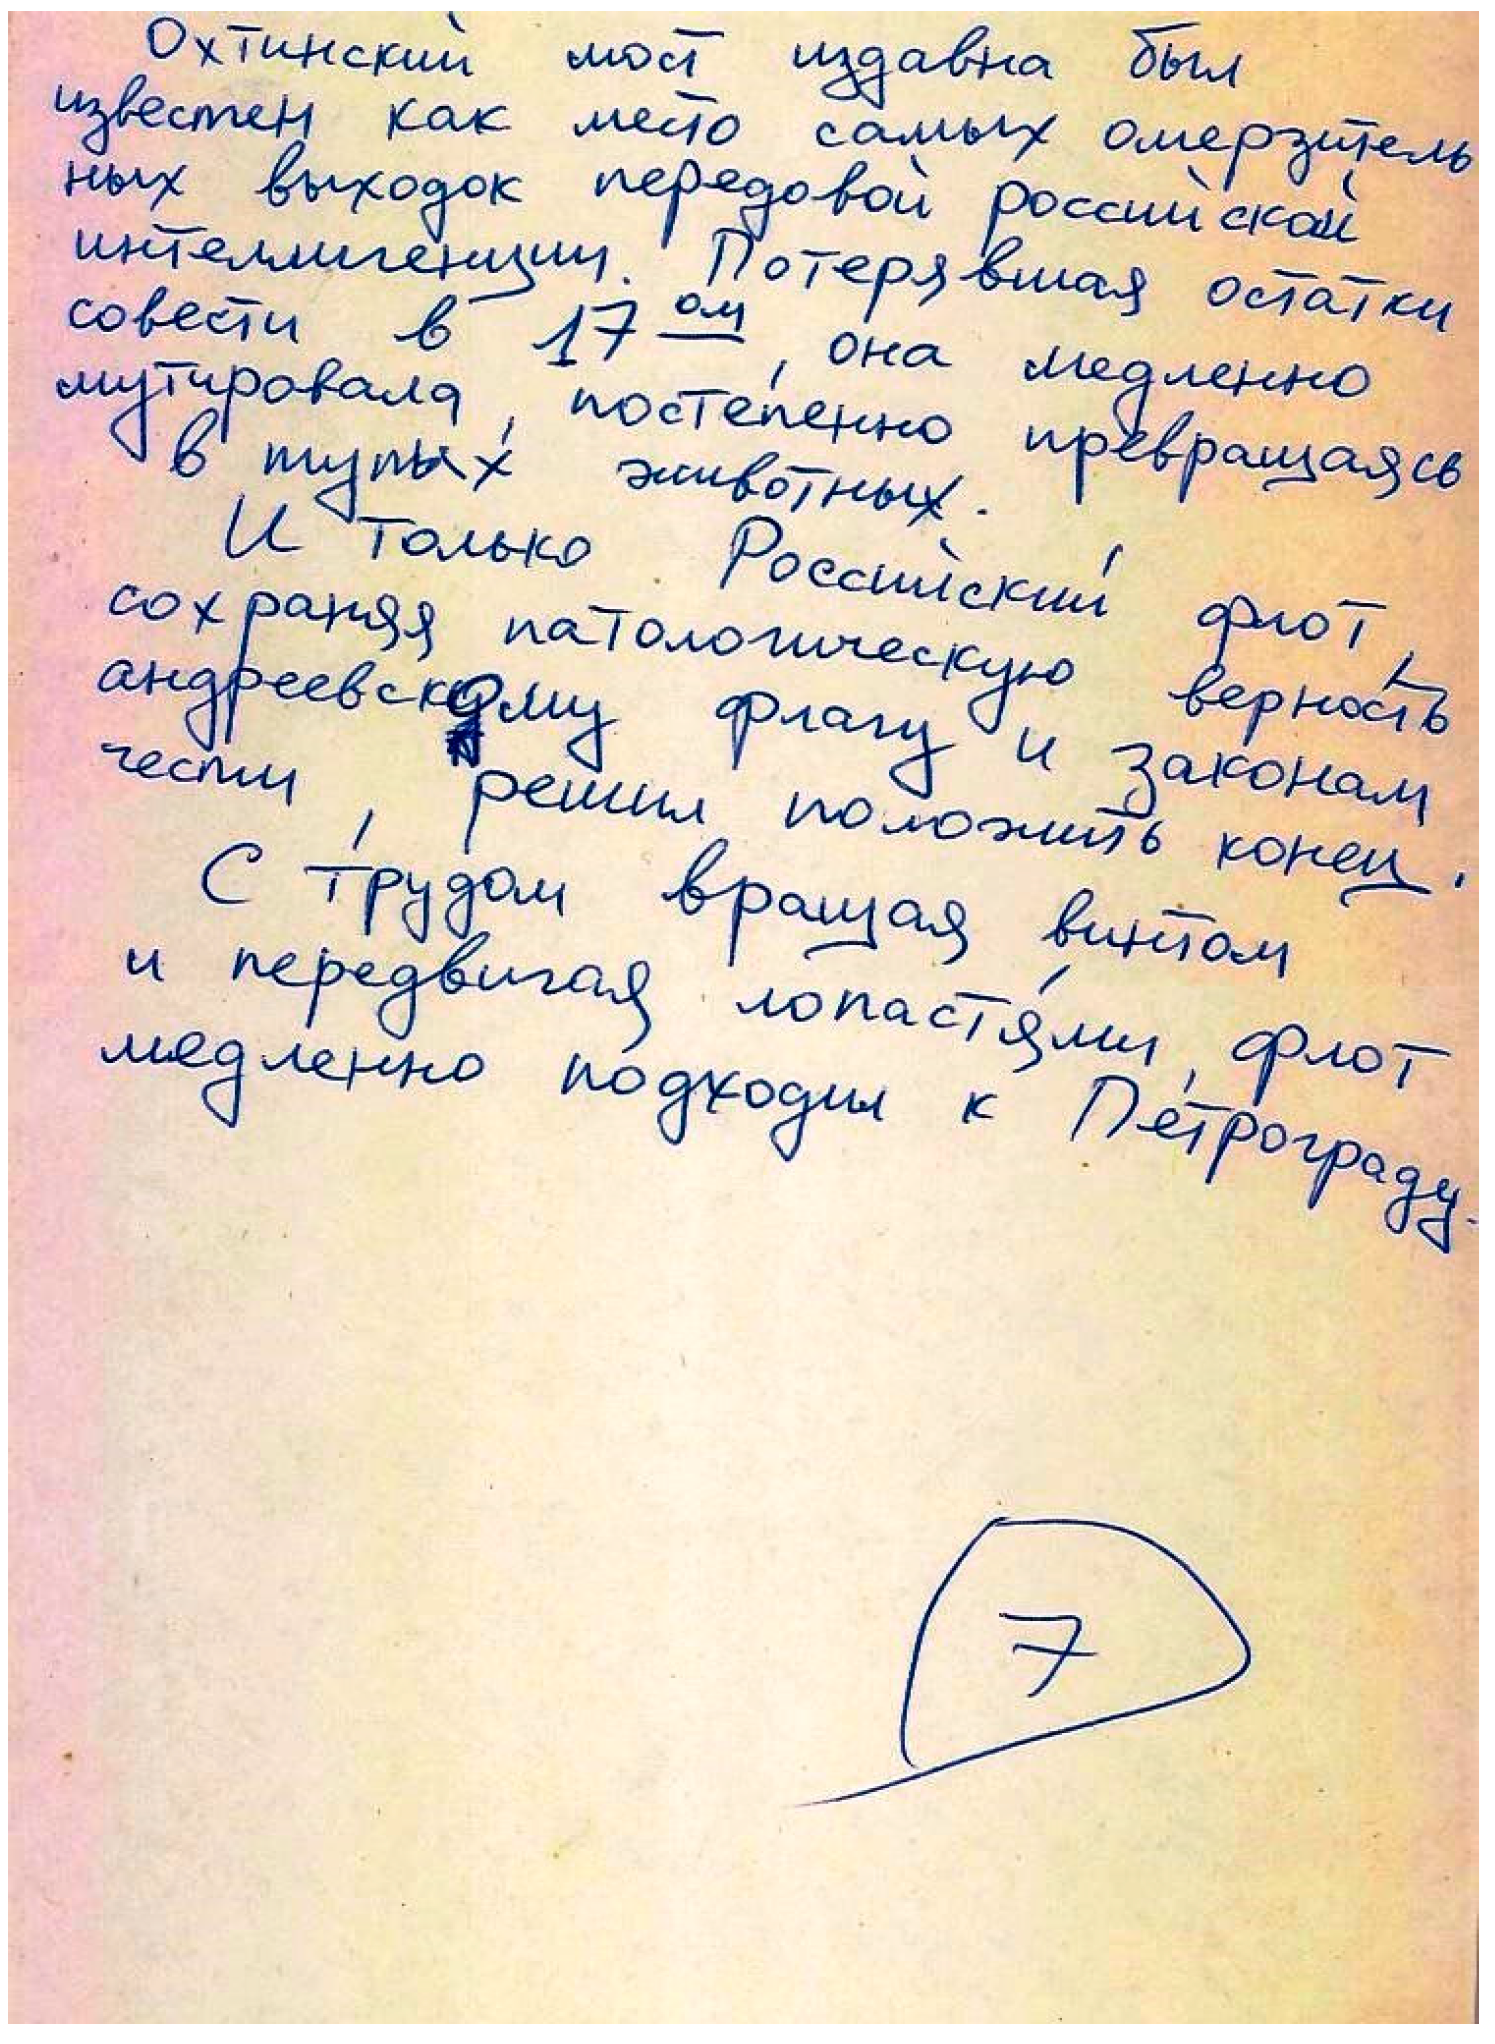 Охтинский мост издавна был
известен как место самых омерзитель
ных выходок передовой российской
интеллигенции. Потерявшая остатки
совести в 17ом, она медленно
мутировала, постепенно превращаясь
в тупых животных.
И только Российский флот,
сохраняя патологическую верность
андреевскому флагу и законам
чести, решил положить конец.
С трудом вращая винтом
и передвигая лопастями, флот
медленно подходил к Петрограду.
7